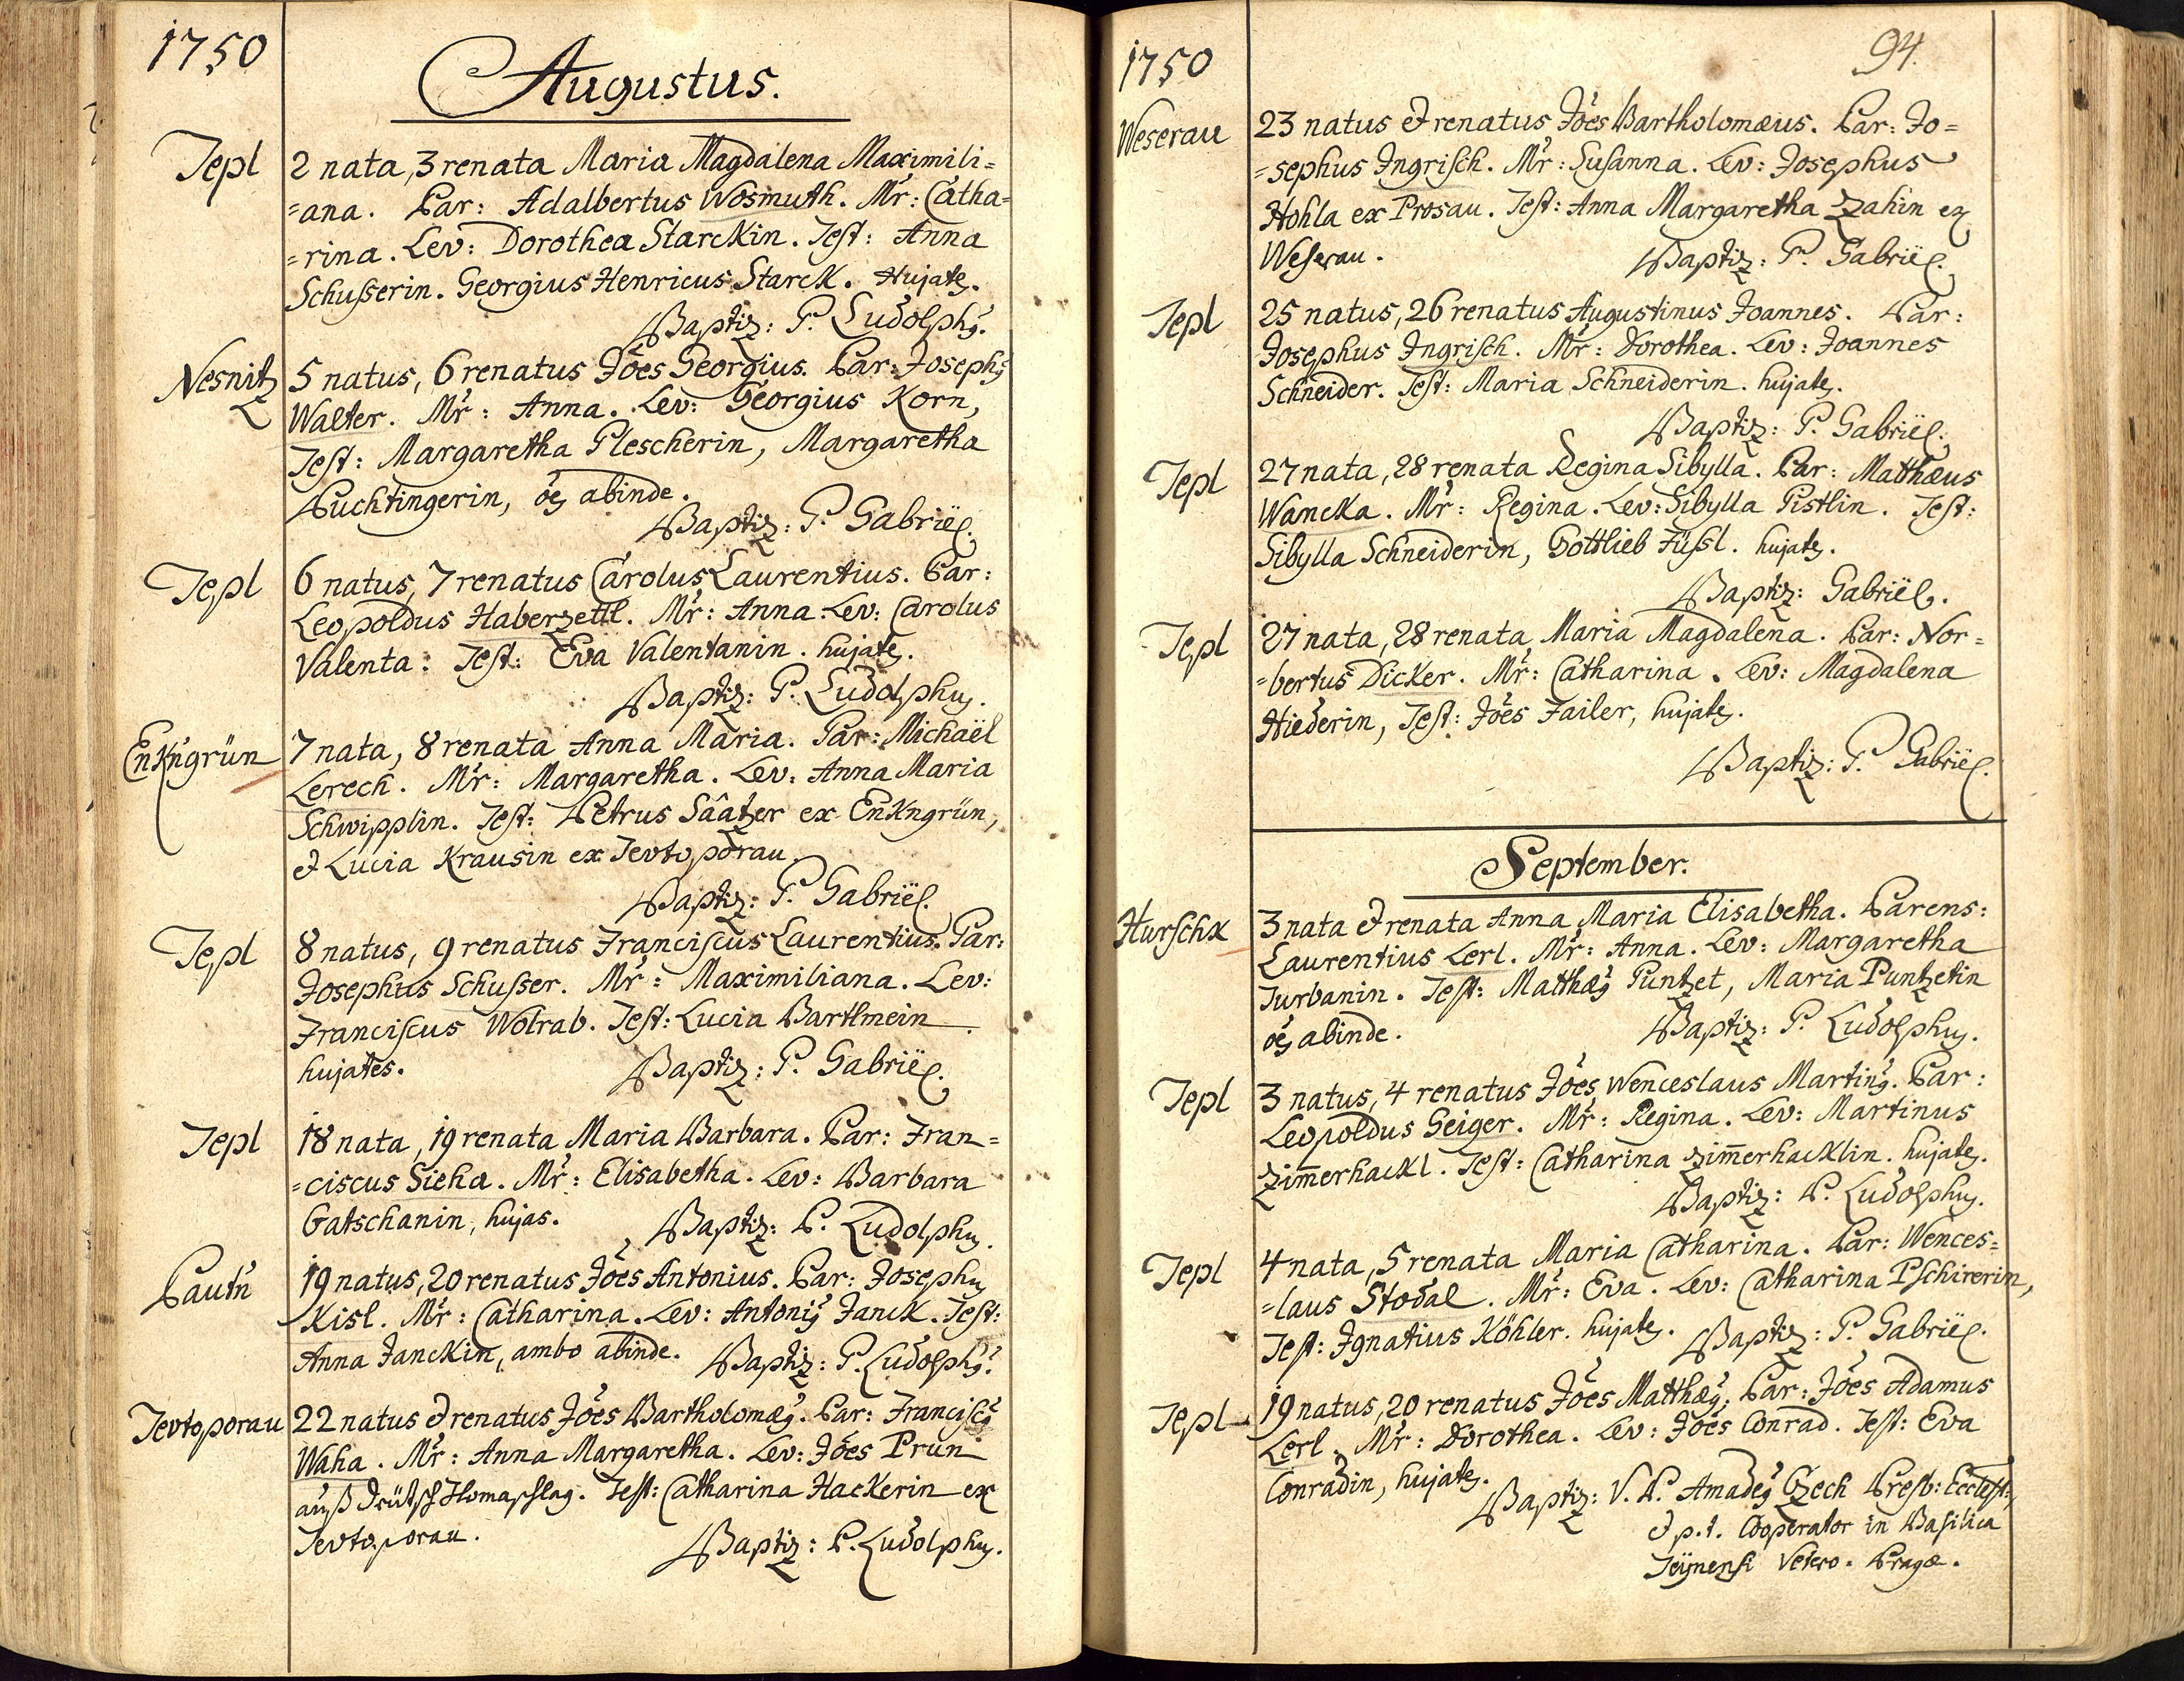 1750
Augustus.
Tepl
2 nata, 3 renata Maria Magdalena Maximili=
=ana. Par: Adalbertus Wosmuth. Mr̃: Catha=
=rina. Lev: Dorothea Starckin. Test: Anna
Schusserin. Georgius Henricus Starck. Hujates.
Baptiz: P. Ludolphus.
Nesnitz
5 natus, 6 renatus Jões Georgius. Par: Josephus
Walter. Mr̃: Anna. Lev: Georgius Korn,
Test: Margaretha Plescherin, Margaretha
Puchtingerin, oẽs abinde.
Baptiz: P. Gabriël.
Tepl
6 natus, 7 renatus Carolus Laurentius. Par:
Leopoldus Haberzettl. Mr̃: Anna. Lev: Carolus
Valenta: Test: Eva Valentanin. hujates.
Baptiz: P. Ludolphus.
Enkngrün
7 nata, 8 renata Anna Maria. Par: Michaël
Lerech. Mr̃: Margaretha. Lev: Anna Maria
Schwipplin. Test: Petrus Sâatzer ex Enkngrün,
& Lucia Krausin ex Tevtoporau.
Baptiz: P. Gabriël.
Tepl
8 natus, 9 renatus Franciscus Laurentius. Par:
Josephus Schusser. Mr̃: Maximiliana. Lev:
Franciscus Wolrab. Test: Lucia Bartlmein.
hujates. Baptiz: P. Gabriël.
Tepl
18 nata, 19 renata Maria Barbara. Par: Fran=
=ciscus Sieha. Mr̃: Elisabetha. Lev: Barbara
Gatschanin, hujas. Baptiz: P. Ludolphus.
Pautn̄
19 natus, 20 renatus Jões Antonius. Par: Josephus
Kisl. Mr̃: Catharina. Lev: Antonius Janck. Test:
Anna Janckin, ambo abinde. Baptiz: P. Ludolphus.
Tevtoporau
22 natus & renatus Jões Bartholomæus. Par: Franciscus
Waha. Mr̃: Anna Margaretha. Lev: Jões Prun
auß Deütsch Thomaschlag. Test: Catharina Hackerin ex
Tevtoporau. Baptiz: P. Ludolphus.
1750
94.
Weserau
23 natus & renatus Jões Bartholomæus. Par: Jo=
=sephus Ingrisch. Mr̃: Susanna. Lev: Josephus
Hohla ex Prosau. Test: Anna Margaretha Zahin ex
Weserau. Baptiz: P. Gabriël.
Tepl
25 natus, 26 renatus Augustinus Joannes. Par:
Josephus Ingrisch. Mr̃: Dorothea. Lev: Joannes
Schneider. Test: Maria Schneiderin. hujates.
Baptiz: P. Gabriël.
Tepl
27 nata, 28 renata Regina Sibylla. Par: Matthæus
Wancka. Mr̃: Regina. Lev: Sibylla Pistlin. Test:
Sibylla Schneiderin, Gottlieb Füssl. hujates.
Baptiz: Gabriël.
Tepl
27 nata, 28 renata Maria Magdalena. Par: Nor=
=bertus Dicker. Mr̃: Catharina. Lev: Magdalena
Hiederin, Test: Jões Failer, hujates.
Baptiz: P. Gabriël.
September.
Hurschx
3 nata & renata Anna Maria Elisabetha. Parens:
Laurentius Lerl. Mr̃: Anna. Lev: Margaretha
Turbanin. Test: Matthæus Puntzet, Maria Puntzetin
oẽs abinde. Baptiz: P. Ludolphus.
Tepl
3 natus, 4 renatus Jões Wenceslaus Martinus. Par:
Leopoldus Geiger. Mr̃: Regina. Lev: Martinus
Zim̄erhackl. Test: Catharina Zim̄erhacklin. hujates.
Baptiz: P. Ludolphus.
Tepl
4 nata, 5 renata Maria Catharina. Par: Wences=
=laus Stodal. Mr̃: Eva. Lev: Catharina Pschirerin,
Test: Ignatius Köhler. hujates. Baptiz: P. Gabriël.
Tepl
19 natus, 20 renatus Jões Matthæus. Par: Jões Adamus
Lerl. Mr̃: Dorothea. Lev: Jões Conrad. Test: Eva
Conradin, hujates.
Baptiz: V. P. Amadeus Czech Presb: Eccles:,
& p.t. Cooperator in Basilica
Teÿnensi Vetero. Pragæ.